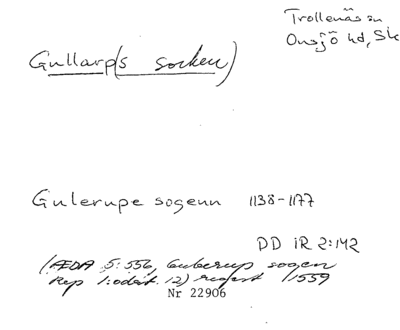 Trollenäs sn
Onsjö hd, Sk
Gullarp(s socken)
Gulerupe sogenn 1138-1177
DD 1R 2:142
(ÆDA 5:556, Guberup sogen
Rep 1:odat. 12) regest 1559
Nr 22906